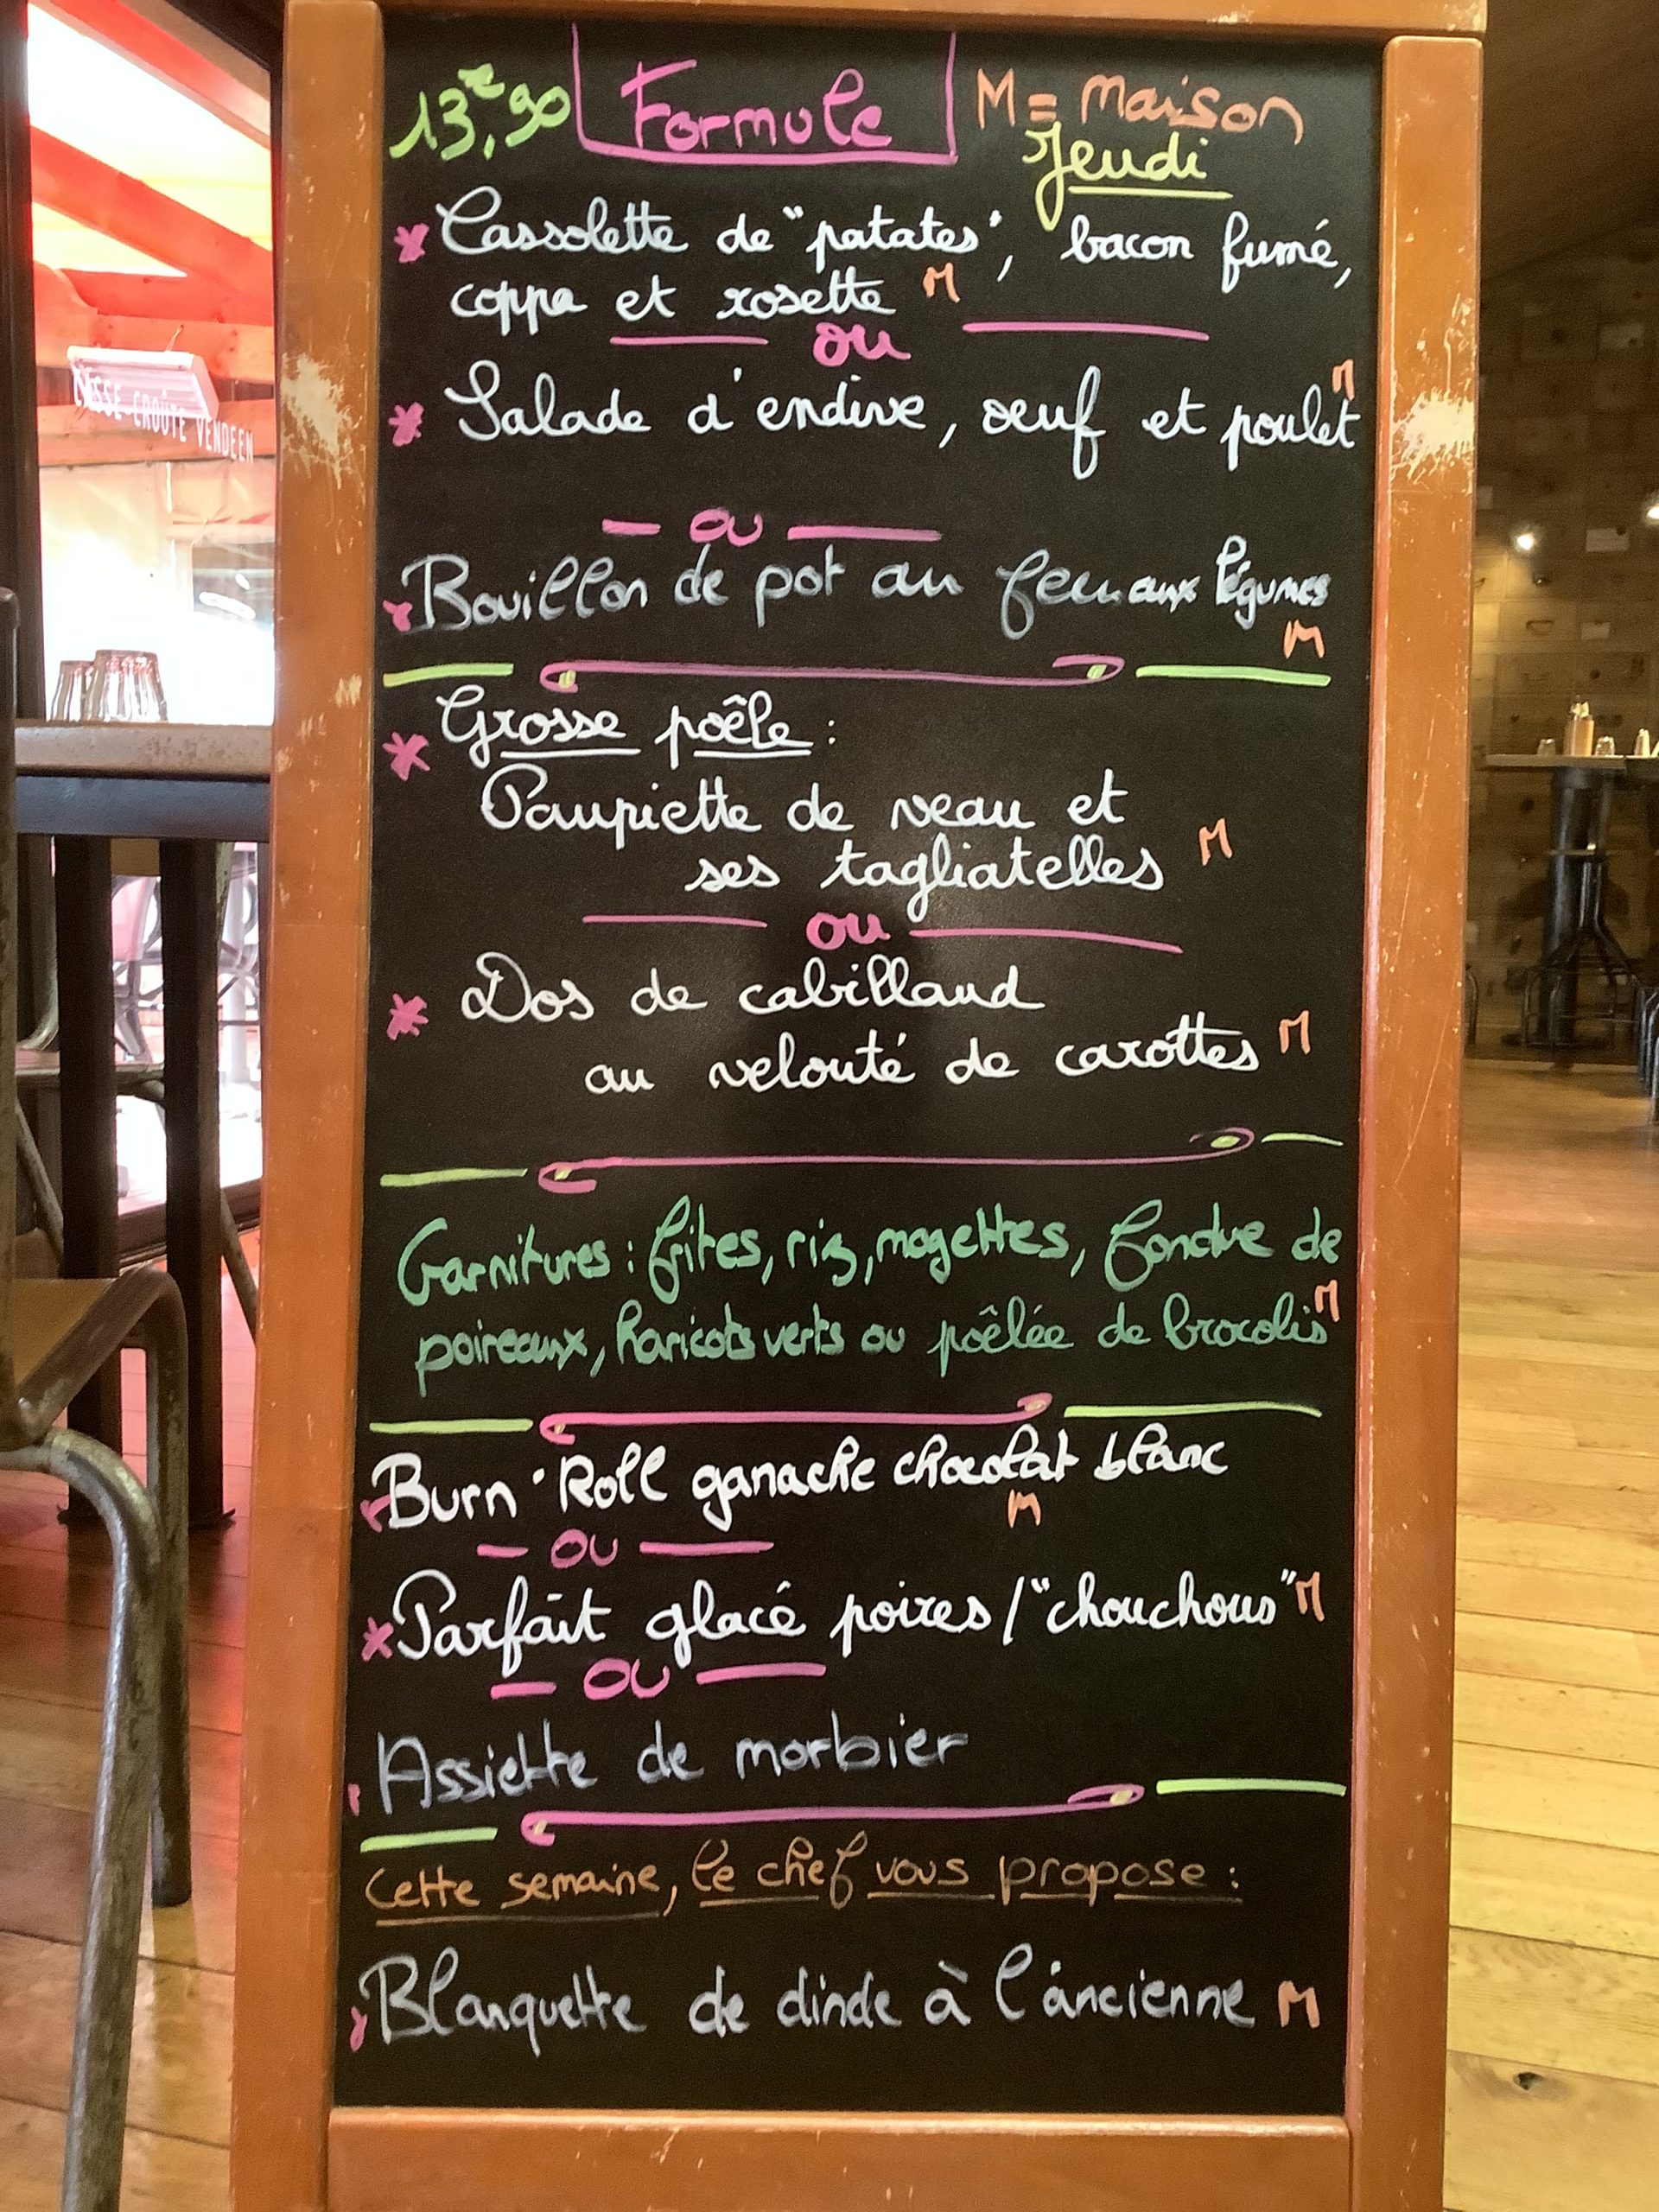 13,€90 Formule M = Maison
Jeudi
Cassolette de "patates", bacon fumé,
coppa et rosette M
ou
Salade d'endive, oeuf et poulet M
ou
Bouillon de pot au feu aux légumes
M
Grosse poêle :
Paupiette de veau et
ses tagliatelles M
ou
Dos de cabillaud
au velouté de carottes M
Garnitures : frites, riz, mogettes, fondue de
poireaux, haricots verts ou poêlée de brocolis M
Burn · Roll ganache chocolat blanc
M
OU
Parfait glacé poires / "chouchous" M
OU
Assiette de morbier
Cette semaine, le chef vous propose :
Blanquette de dinde à l'ancienne M
CASSE CROÛTE VENDEEN